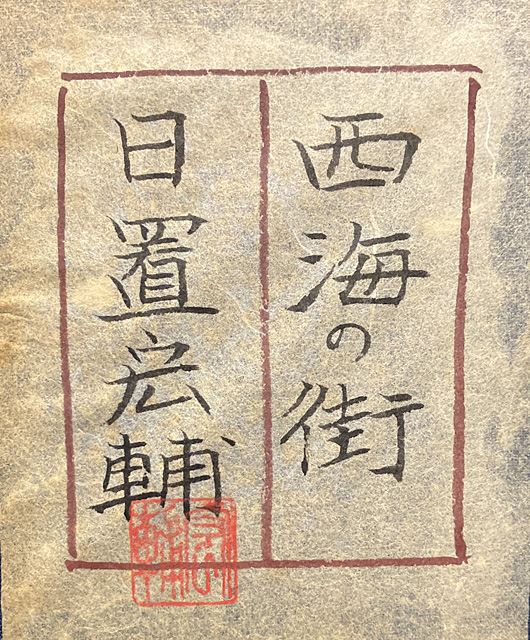 西海の街
日置宏輔